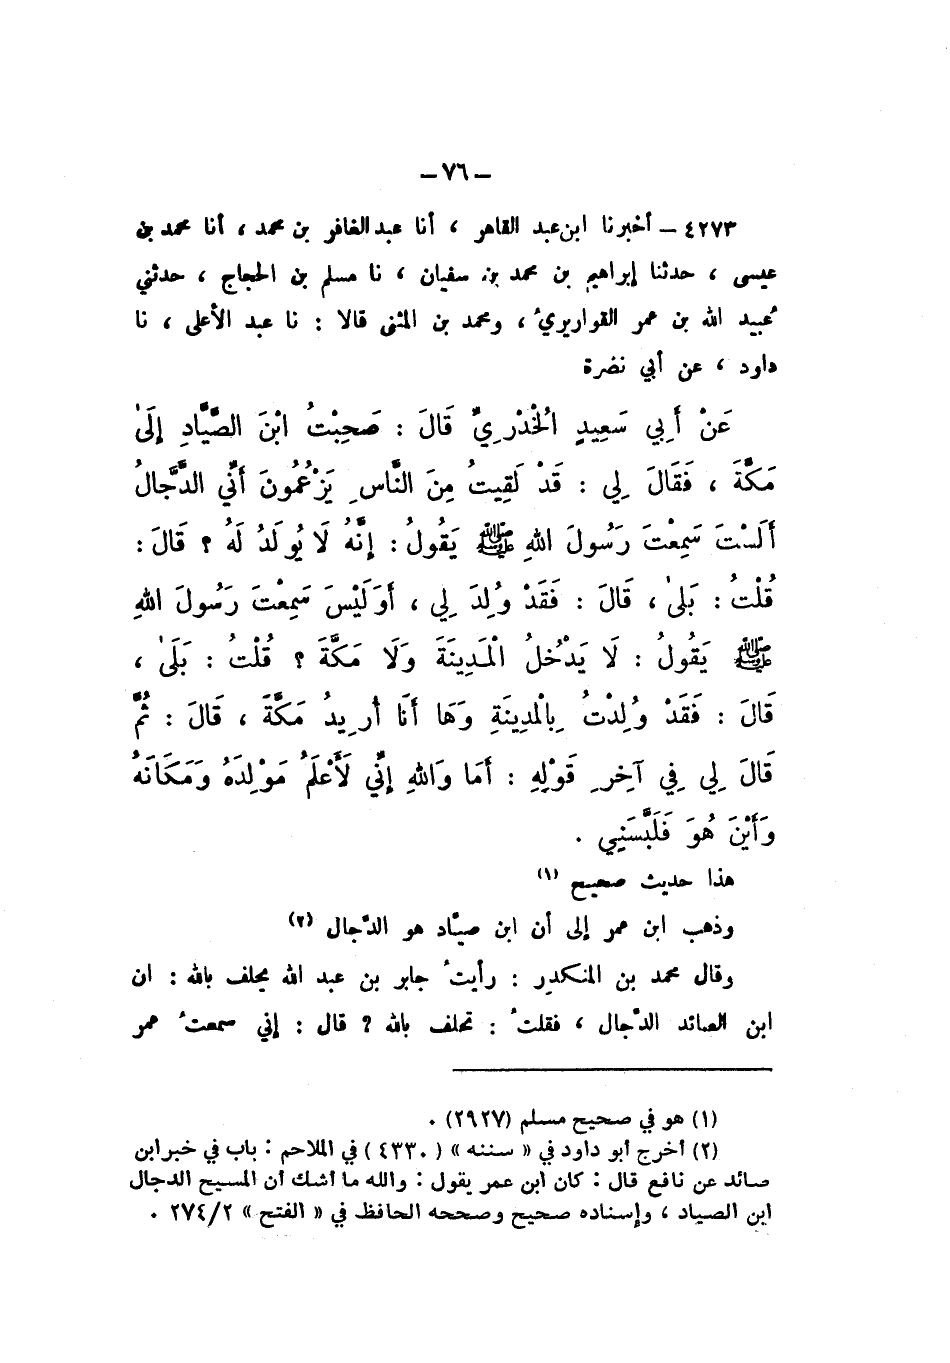 – ٧٦ –
٤٢٧٣ – أخبرنا ابن عبد القاهر ، أنا عبد الغافر بن محمد ، أنا محمد بن
عيسى ، حدثنا إبراهيم بن محمد بن سفيان ، نا مسلم بن الحجاج ، حدثني
عُبيد الله بن عمر القواريريُ ، ومحمد بن المثنى قالا : نا عبد الأعلى ، نا
داود ، عن أبي نضرة
عَنْ أَبِي سَعِيدٍ الْخُدْرِيِّ قَالَ : صَحِبْتُ ابْنَ الصَّيَّادِ إِلَىٰ
مَكَّةَ ، فَقَالَ لِي : قَدْ لَقِيتُ مِنَ النَّاسِ يَزْعُمُونَ أَنِّي الدَّجَّالُ
أَلَسْتَ سَمِعْتَ رَسُولَ اللهِ ﷺ يَقُولُ : إِنَّهُ لَا يُولَدُ لَهُ ؟ قَالَ :
قُلْتُ : بَلىٰ ، قَالَ : فَقَدْ وُلِدَ لِي ، أَوَلَيْسَ سَمِعْتَ رَسُولَ اللهِ
ﷺ يَقُولُ : لَا يَدْخُلُ الْمَدِينَةَ وَلَا مَكَّةَ ؟ قُلْتُ : بَلَىٰ ،
قَالَ : فَقَدْ وُلِدْتُ بِالْمَدِينَةِ وَهَا أَنَا أُرِيدُ مَكَّةَ ، قَالَ : ثُمَّ
قَالَ لِي فِي آخِرِ قَوْلِهِ : أَمَا وَاللهِ إِنِّي لَأَعْلَمُ مَوْلِدَهُ وَمَكَانَهُ
وَأَيْنَ هُوَ فَلَبَّسَنِي .
هذا حديث صحيح (١)
وذهب ابن عمر إلى أن ابن صيّاد هو الدّجال (٢)
وقال محمد بن المنكدر : رأيتُ جابر بن عبد الله يحلف بالله : ان
ابن الصائد الدّجال ، فقلتُ : تحلف بالله ؟ قال : إني سمعتُ عمر
(١) هو في صحيح مسلم (٢٩٢٧) .
(٢) أخرج أبو داود في « سننه » ( ٤٣٣٠ ) في الملاحم : باب في خبر ابن
صائد عن نافع قال : كان ابن عمر يقول : والله ما أشك أن المسيح الدجال
ابن الصياد ، وإسناده صحيح وصححه الحافظ في « الفتح » ٢٧٤/٢ .